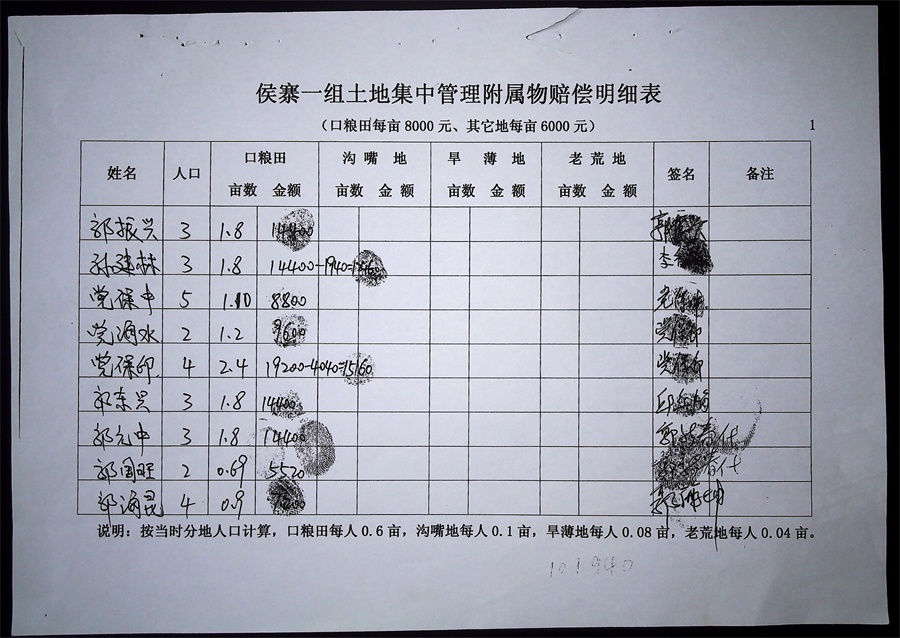 侯寨一组土地集中管理附属物赔偿明细表
（口粮田每亩8000元、其它地每亩6000元）
1
姓名 人口 口粮田 沟嘴地 旱薄地 老荒地 签名 备注
亩数 金额 亩数 金额 亩数 金额 亩数 金额
郭振兴 3 1.8 14400 郭振兴
孙建林 3 1.8 14400-1940=12460 李
党保中 5 1.10 8800 党保中
党海水 2 1.2 9600 党保印
党保印 4 2.4 19200-4040=15160 党保印
郭东兴 3 1.8 14400
郭元中 3 1.8 14400 代
郭国旺 2 0.69 5520 代
郭海昆 4 0.9 郭海坤
说明：按当时分地人口计算，口粮田每人0.6亩，沟嘴地每人0.1亩，旱薄地每人0.08亩，老荒地每人0.04亩。
101940